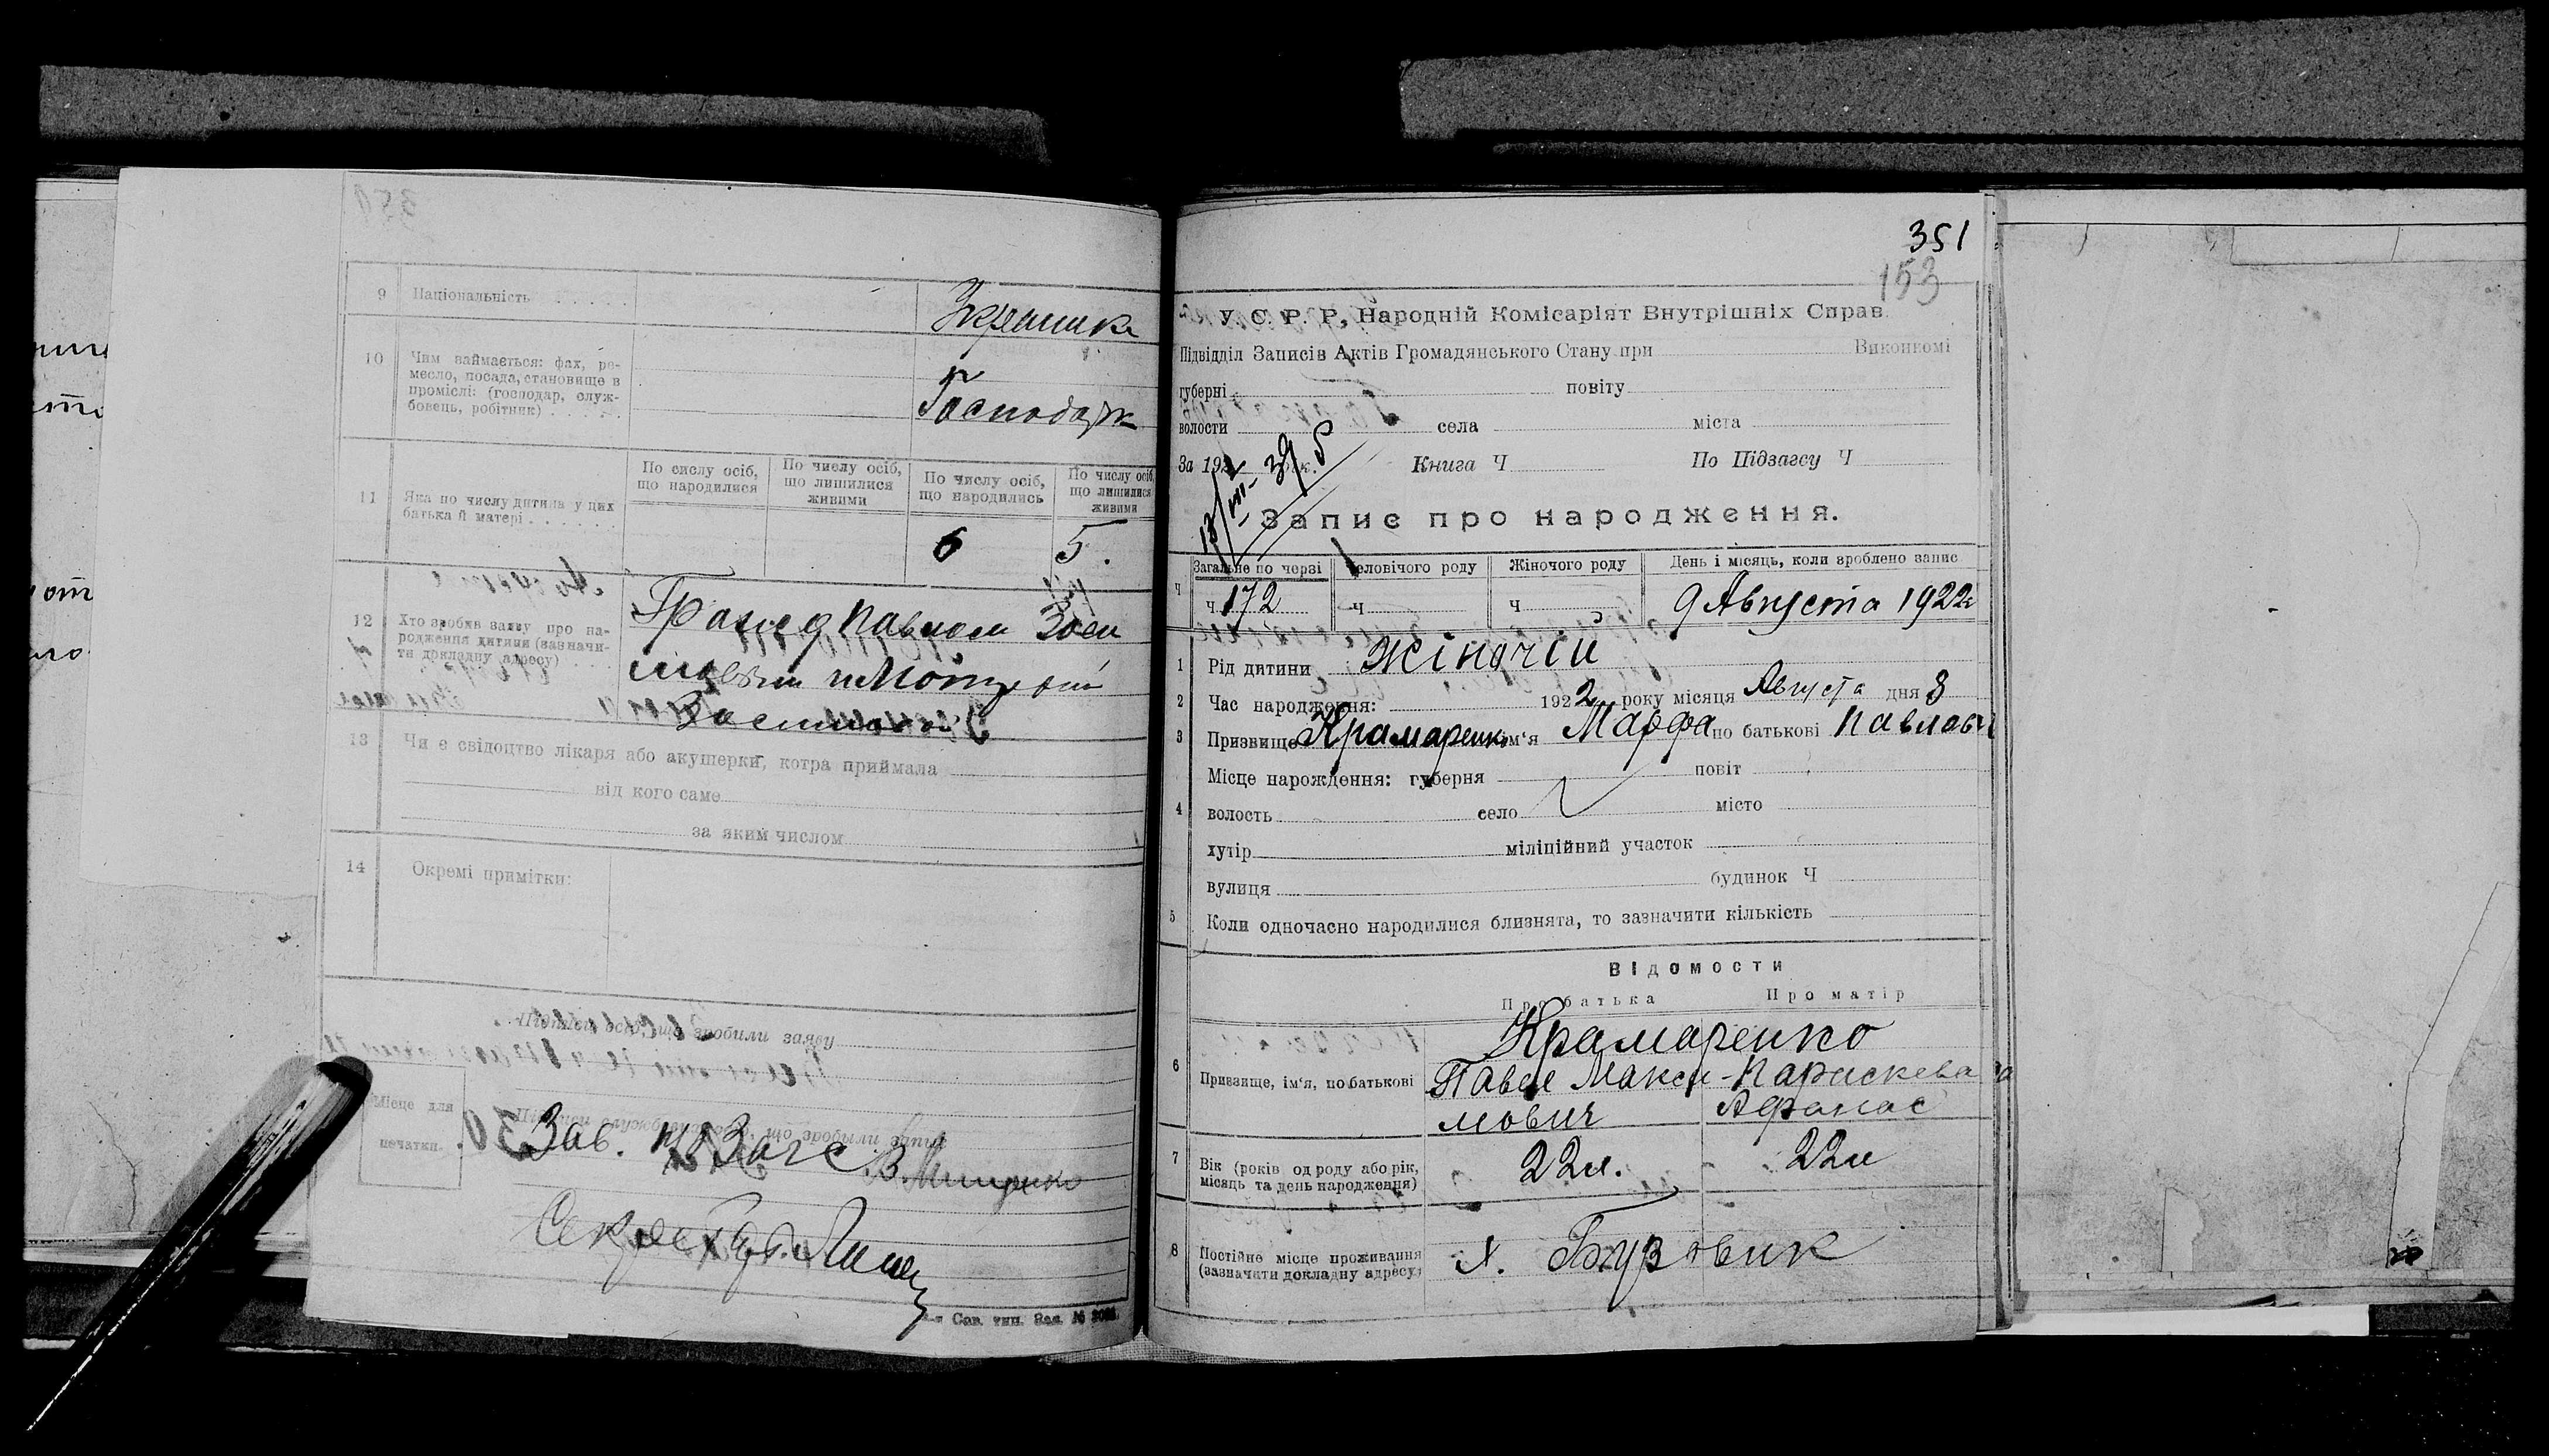 9 Національність
Украинка
10 Чим займається: фах, ре-
месло, посада, становище в
промислі: (господар, служ-
бовець, робітник)
Господарк
11 Яка по числу дитина у цих
батька й матері
По числу осіб,
що народилися
По числу осіб,
що лишилися
живими
По числу осіб,
що народились
По числу осіб,
що лишилися
живими
6 5.
12 Хто зробив заяву про на-
родження дитини (зазначи-
ти докладну адресу)
Павлом
13 Чи є свідоцтво лікаря або акушерки, котра приймала
від кого саме
за яким числом
14 Окремі примітки:
Підписи осіб, що зробили заяву
Місце для
печатки.
Зав. п/Загс В. Мищенко
Секретарь
Сов. тип. Зак. №
351
153
У. С. Р. Р. Народній Комісаріят Внутрішніх Справ.
Підвідділ Записів Актів Громадянського Стану при Виконкомі
губерні повіту
волости села міста
За 1922 р. Книга Ч По Підзагсу Ч
Запис про народження.
Загальне по черзі Чоловічого роду Жіночого роду День і місяць, коли зроблено запис
Ч ч. 172 ч ч 9 Августа 1922
1 Рід дитини жіночій
2 Час народження: 1922 року місяця Августа дня 8
3 Призвище Крамаренко ім'я Марфа по батькові Павлов
Місце нарождення: губерня повіт
4 волость село місто
хутір міліційний участок
вулиця будинок Ч
5 Коли одночасно народилися близнята, то зазначити кількість
Відомости
Про батька Про матір
Крамаренко
6 Призвище, ім'я, по батькові Павел Макси- Параскева
мович Афанас
7 Вік (років од роду або рік,
місяць та день народження)
22л. 22л
8 Постійне місце проживання
(зазначити докладну адресу)
х. Бузовик